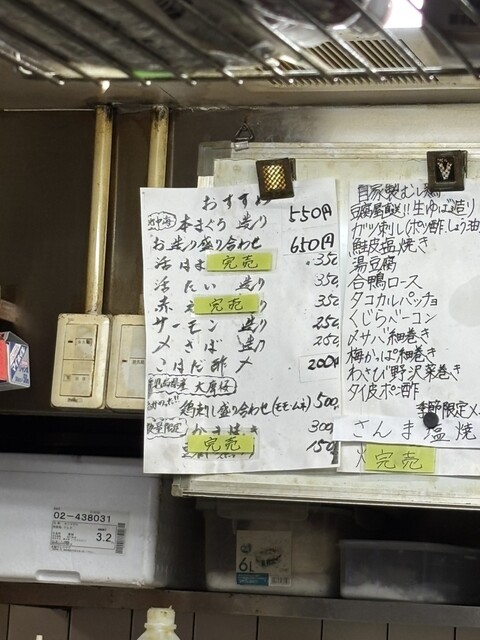 おすすめ
本まぐろ 造り 550円
お造り盛り合わせ 650円
活はま 完売 350
活たい 造り 350
赤え 完売 350
サーモン 造り 250
〆さば 造り 250
こはだ酢〆 200円
大原佳
鶏刺し盛り合わせ(モモ・ムネ) 500
300
完売 150
自家製むし鶏
豆腐屋直送!!生ゆば造り
ガツ刺し(ポン酢、しょう油
鮭皮塩焼き
湯豆腐
合鴨ロース
タコカルパッチョ
くじらベーコン
〆サバ細巻き
梅かっぱ細巻き
わさび野沢菜巻き
タイ皮ポン酢
季節限定メ
さんま塩焼
完売
02-438031
3.2
6L